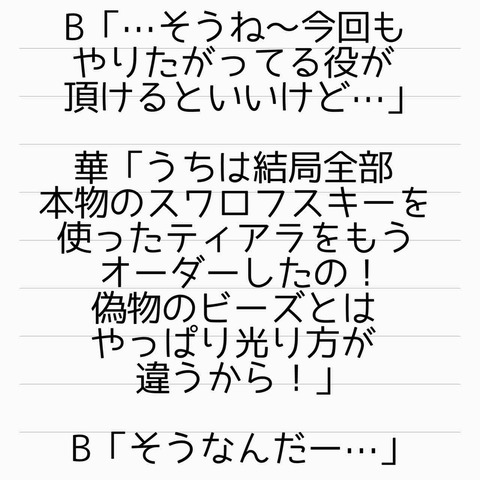 B「…そうね～今回も
やりたがってる役が
頂けるといいけど…」
華「うちは結局全部
本物のスワロフスキーを
使ったティアラをもう
オーダーしたの！
偽物のビーズとは
やっぱり光り方が
違うから！」
B「そうなんだー…」